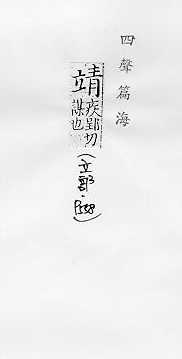 四聲篇海
靖
疾郢切
謀也
(立部·